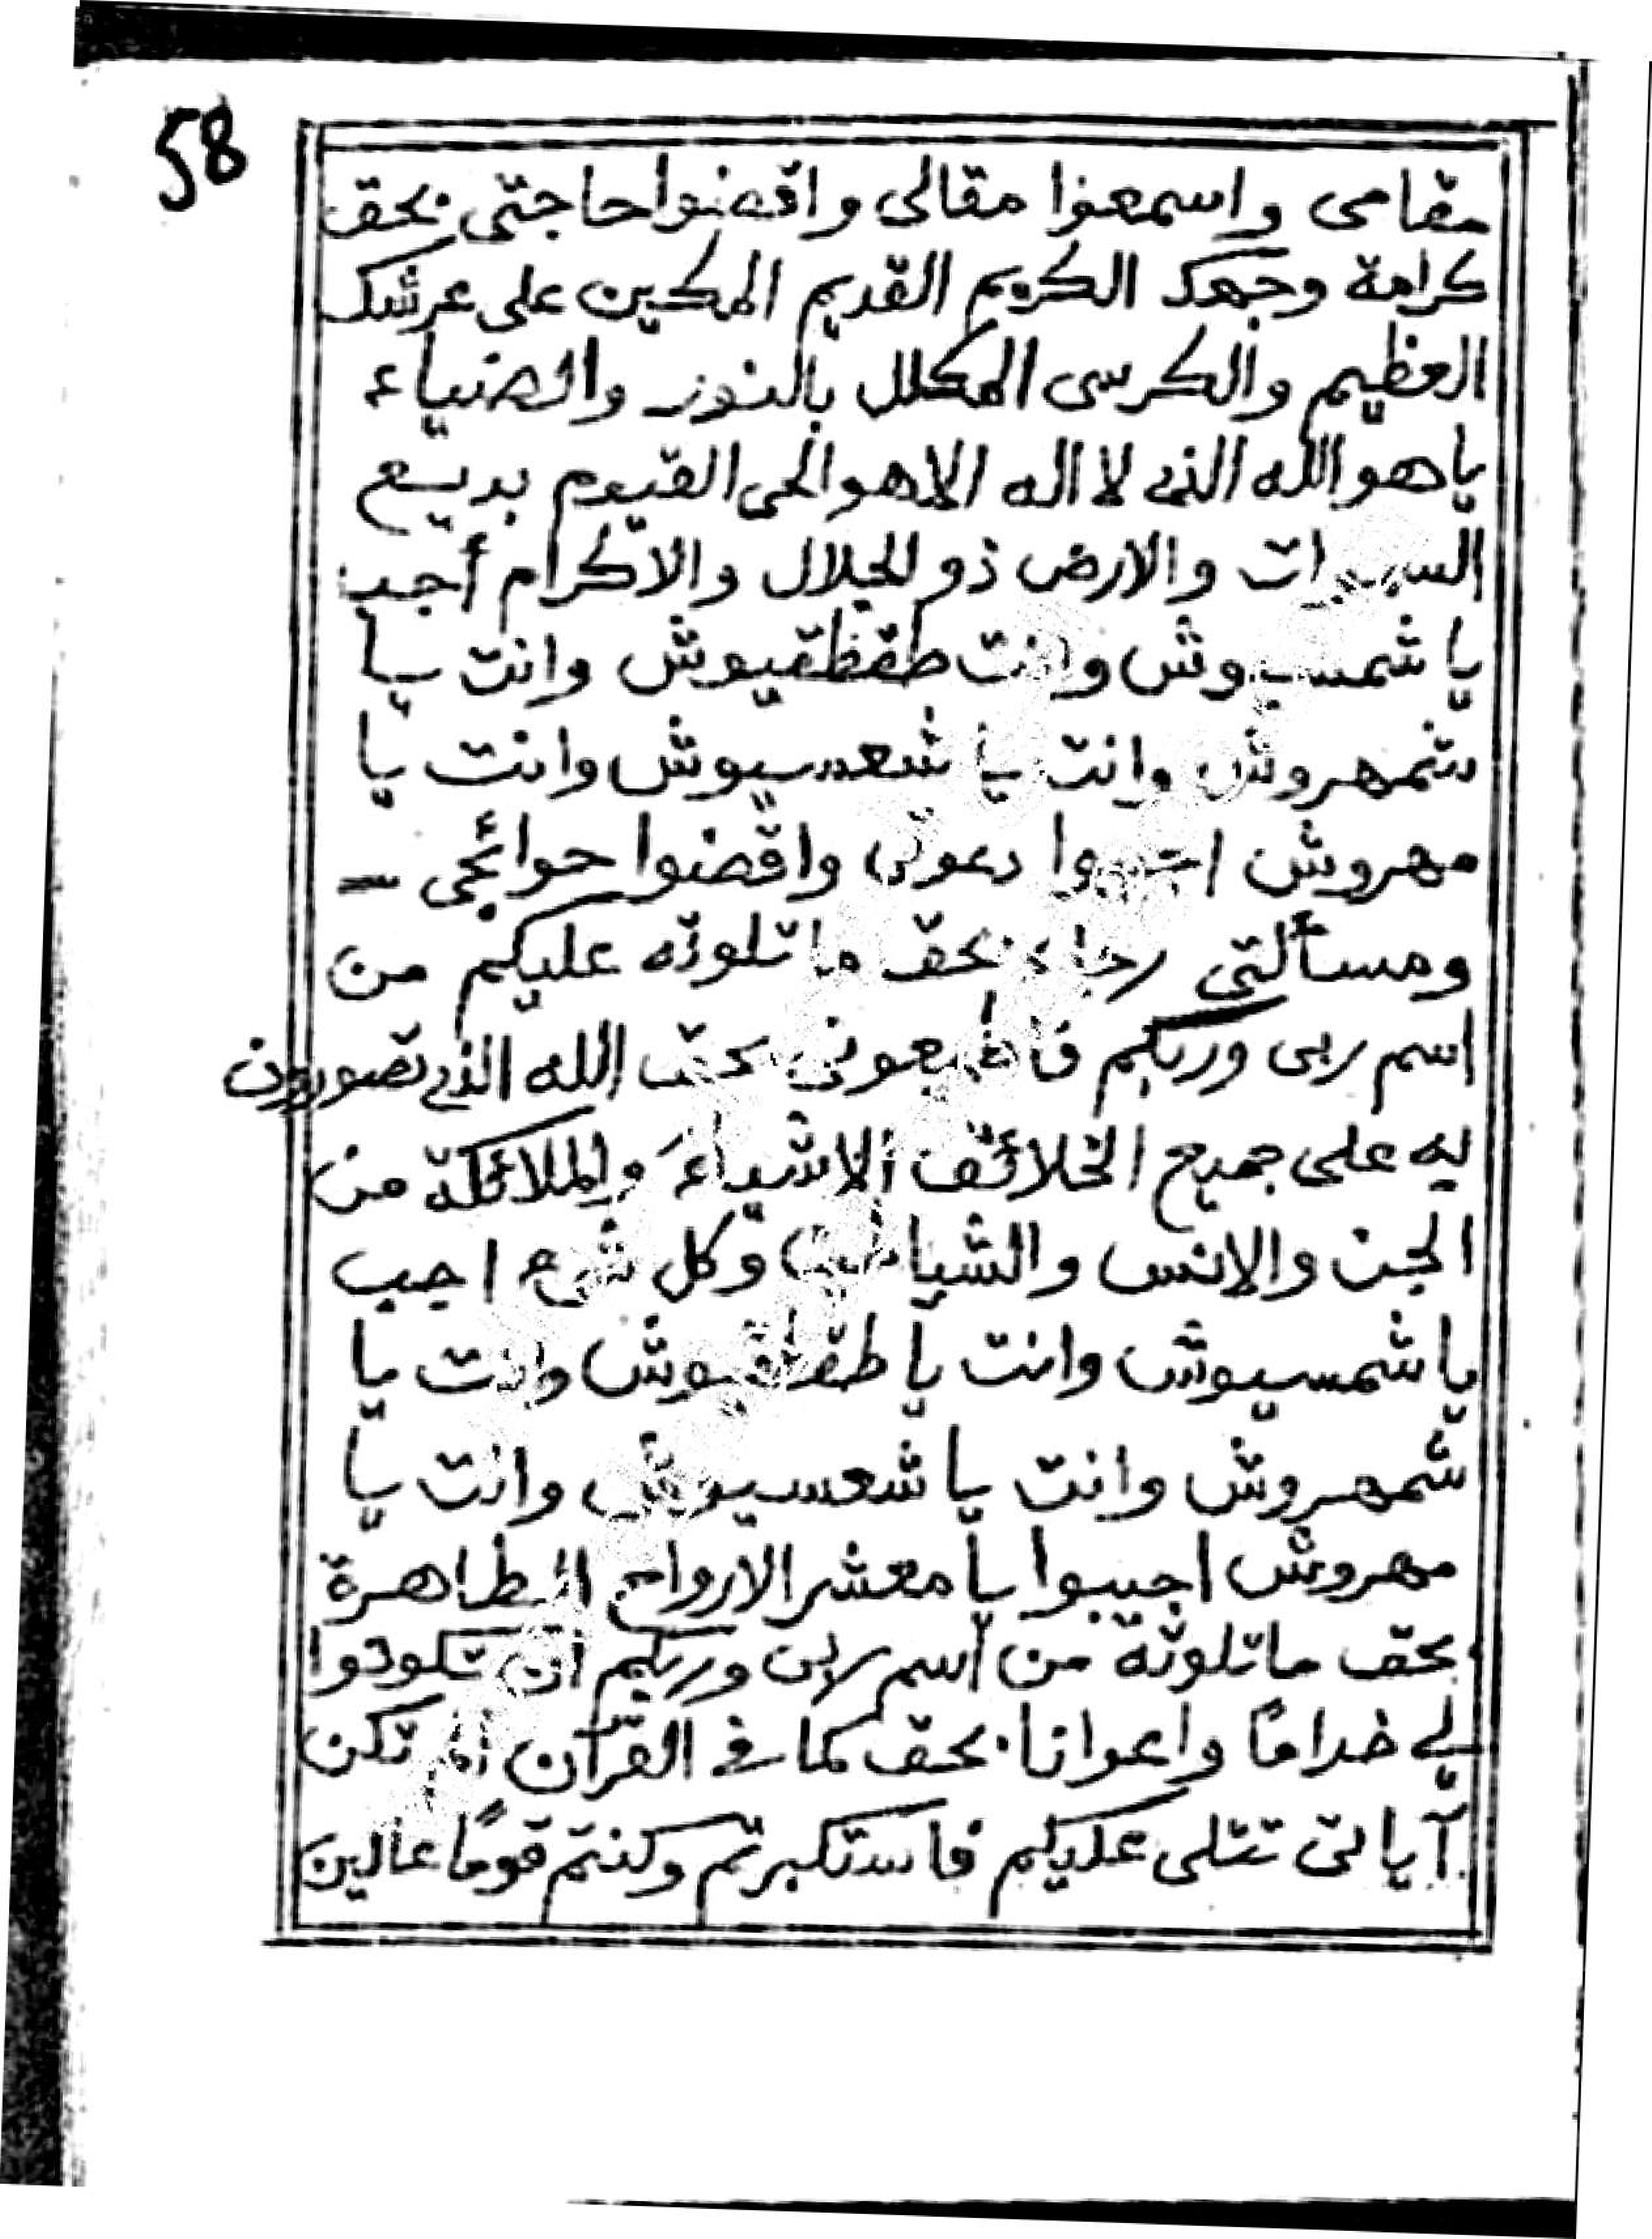 58
مقامى واسمعوا مقالى واقضوا حاجتى بحق
كرامة وجهك الكريم القديم المكين على عرشك
العظيم والكرسى المكلل بالنور والضياء
يا هو الله الذى لا اله الا هو الحى القيوم بديع
والارض ذو الجلال والاكرام أجب
يا وانت طقطقيوش وانت يا
شمهروش وانت يا وانت يا
مهروش دعوتى واقضوا حوائجى
ومسألتى بحق ما تلوته عليكم من
اسم ربى وربكم بحق الله الذى تصورون
ليه على جميع الخلائق الاشياء والملائكة من
الجن والإنس وكل اجب
يا شمسيوش وانت يا وانت يا
شمهروش وانت يا شعسيوش وانت يا
مهروش اجيبوا يا معشر الارواح الطاهرة
بحق ما تلوته من اسم ربى وربكم ان تكونوا
لى خداما واعوانا بحق كما فى القرآن تكن
آياتى تتلى عليكم فاستكبرتم وكنتم قومًا عالين